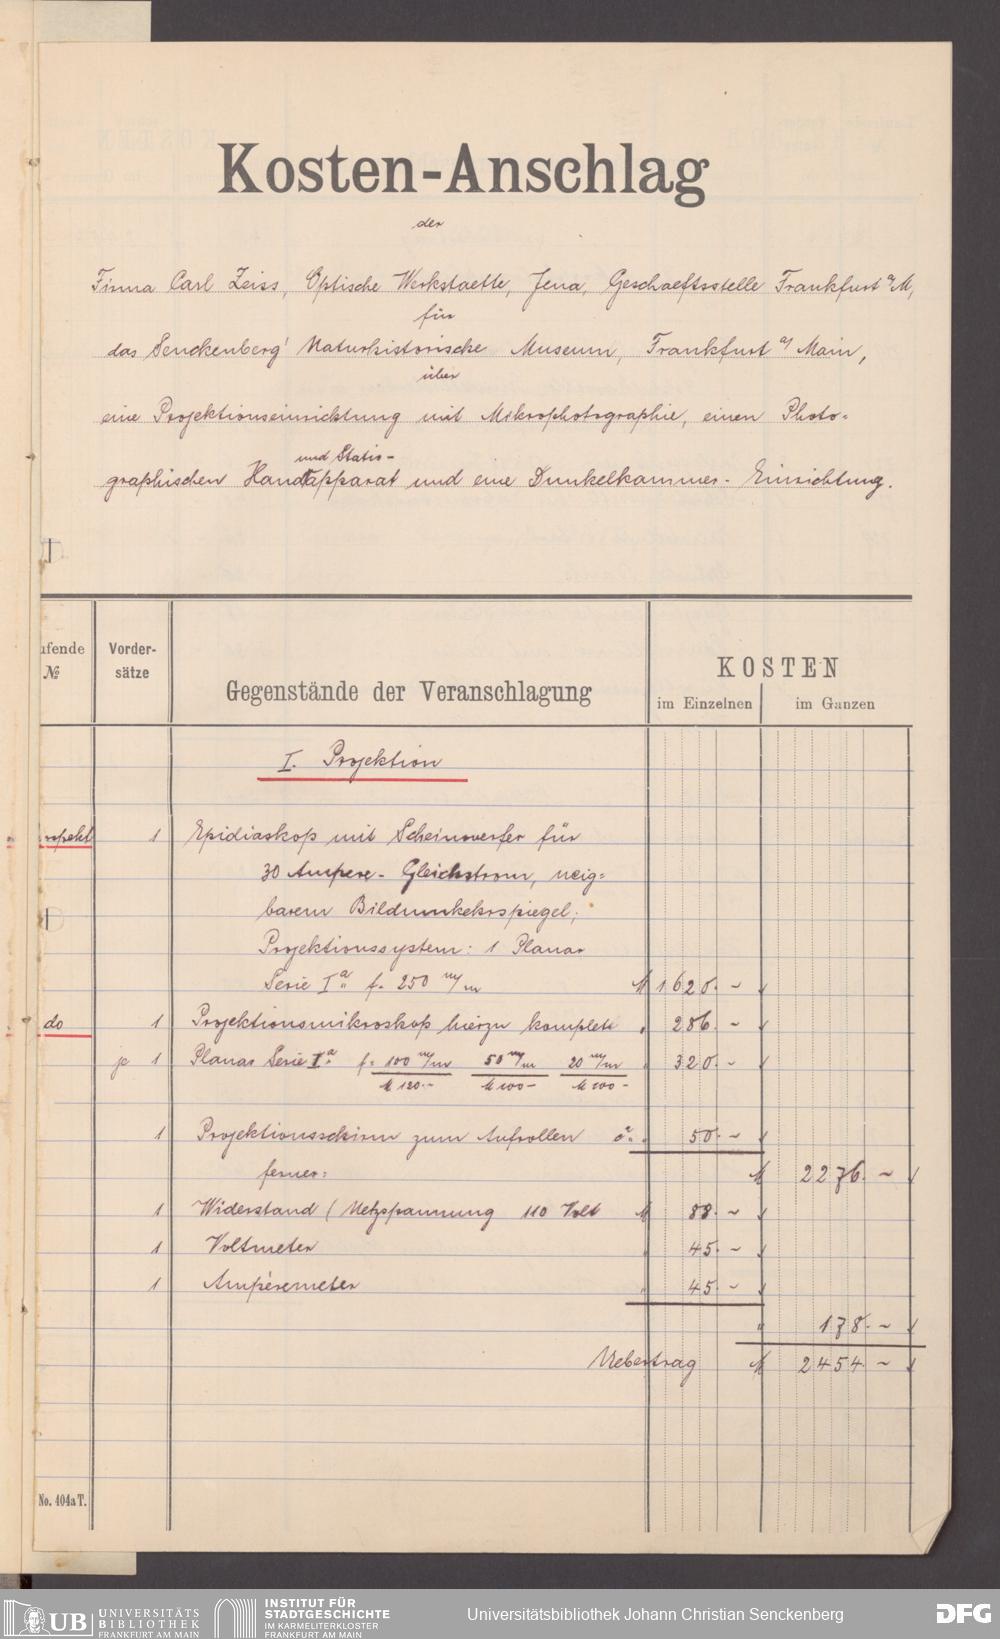 Kosten-Anschlag
der
Firma Carl Zeiss, Optische Werkstaette, Jena, Geschaeftsstelle Frankfurt a/M,
für
das Senckenberg' Naturhistorische Museum, Frankfurt a/ Main,
über
eine Projektionseinrichtung mit Mikrophotographie, einen Photo=
und Stativ-
graphischen Handapparat und eine Dunkelkammer- Einrichtung.
ufende
№
Vorder-
sätze
Gegenstände der Veranschlagung
KOSTEN
im Einzelnen
im Ganzen
I. Projektion
rospekt 1 Epidiaskop mit Scheinwerfer für
30 Ampere- Gleichstrom, neig=
barem Bildumkehrspiegel;
Projektionssystem: 1 Planar
Serie Ia f= 250 m/m M 1620.-
do 1 Projektionsmikroskop hierzu komplett " 286.-
je 1 Planar Serie Ia f= 100 m/m 50 m/m 20 m/m " 320.-
M 120.- M 100- M 100-
1 Projektionsschirm zum Aufrollen " 50.-
ferner: M 2276.-
1 Widerstand (Netzspannung 110 Volt M 88.-
1 Voltmeter " 45.-
1 Ampèremeter " 45.-
" 178.-
Uebertrag M 2454.-
No. 404a T.
UB UNIVERSITÄTS
BIBLIOTHEK
FRANKFURT AM MAIN
INSTITUT FÜR
STADTGESCHICHTE
IM KARMELITERKLOSTER
FRANKFURT AM MAIN
Universitätsbibliothek Johann Christian Senckenberg
DFG